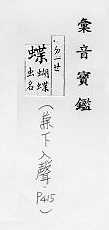 彙音寶鑑
蝶 蝴蝶 虫名
(兼下入聲)
P415